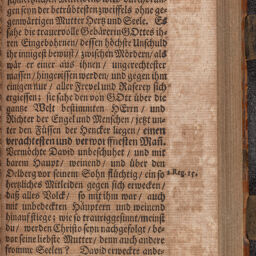 gen seyn der betrübtesten zweiffels ohne ge-
genwärtigen Mutter Hertz und Seele. Es
sahe die trauervolle Gebärerin GOttes ih-
ren Eingebohrnen / dessen höchste Unschuld
ihr innigst bewust / zwischen Mördern / als
wär er einer aus ihnen / ungerechtester
massen / hingerissen werden / und gegen ihm
einigen nur / aller Frevel und Raserey sich
ergiessen; sie sahe den von GOtt über die
gantze Welt bestimmten HErrn / und
Richter der Engel und Menschen / jetzt un-
ter den Füssen der Hencker liegen / einen
verachtesten und verworffnesten Mañ.
Vermochte David unbeschuhet / und mit
barem Haupt / weinend / und über den
Oelberg vor seinem Sohn flüchtig / ein so
hertzliches Mitleiden gegen sich erwecken /
daß alles Volck / so mit ihm war / auch
mit unbedeckten Häuptern und weinend
hinauf stiege; wie so trauriggesinnt / meinst
du / werden Christo seyn nachgefolgt / be-
vor seine liebste Mutter / denn auch andere
fromme Seelen? David erweckte ande-
2. Reg. 15.